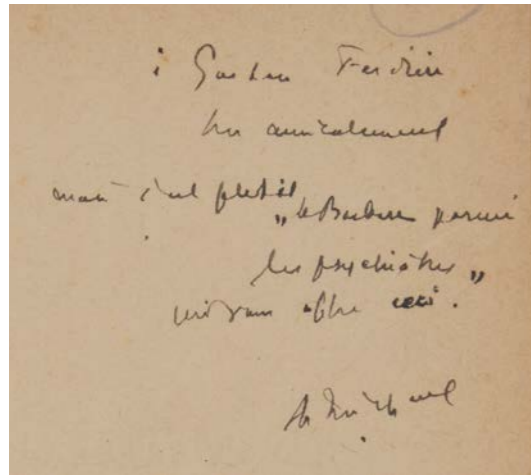 à Gaston Ferdière
très amicalement
mais c'est plutôt
„ le Barbare parmi
les psychiatres „
qui vous offre ceci.
H Michaux